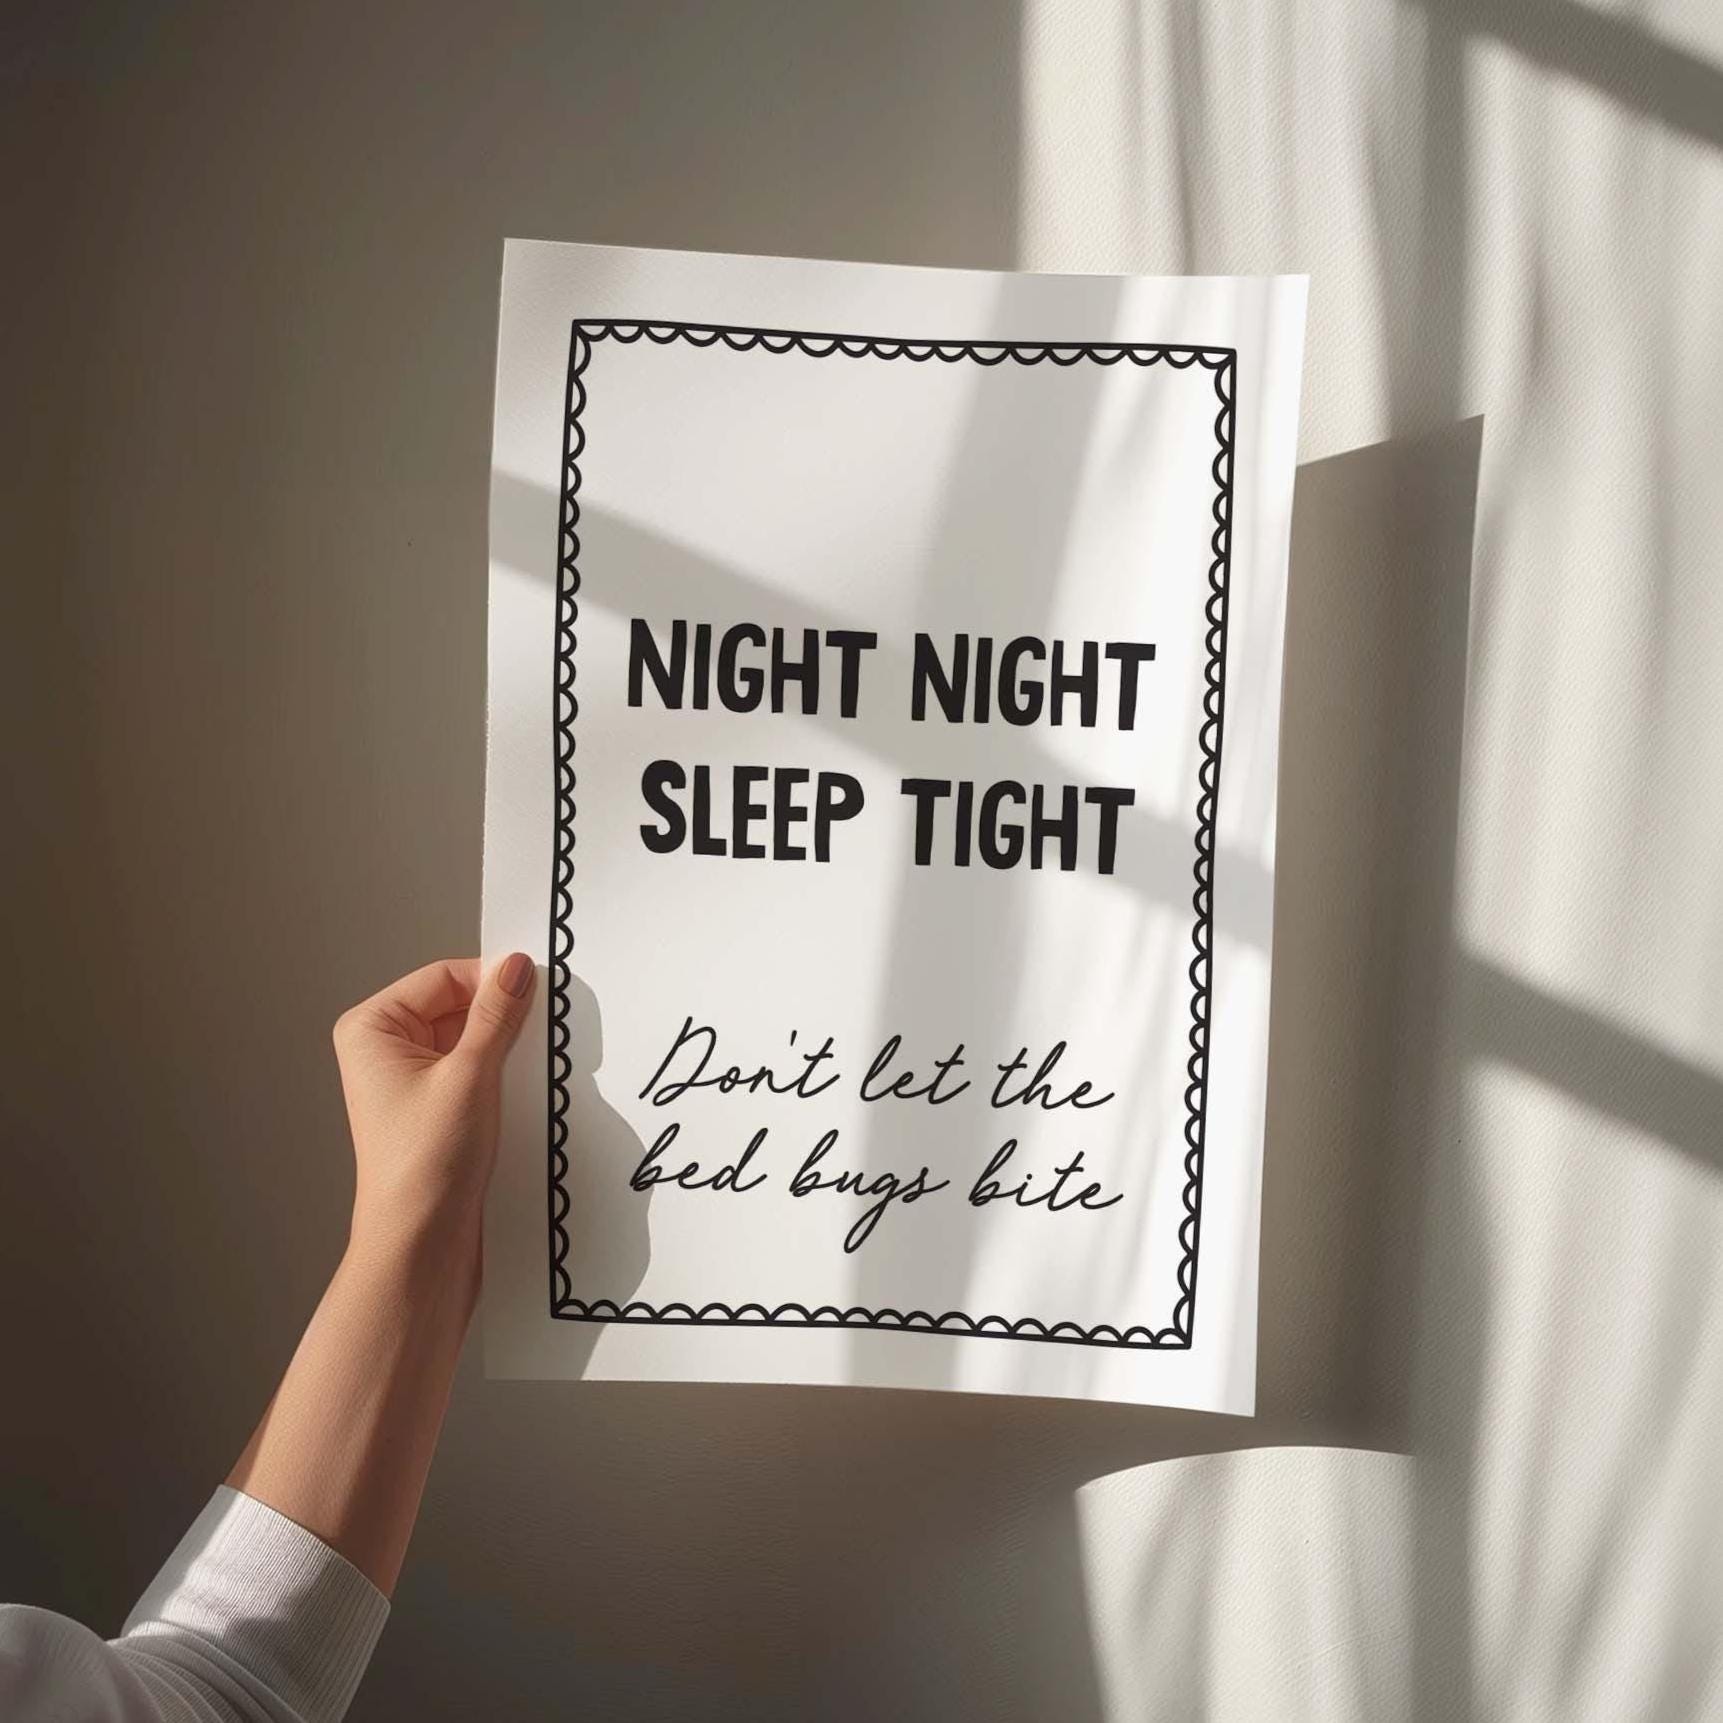 NIGHT NIGHT
SLEEP TIGHT
Don't let the
bed bugs bite